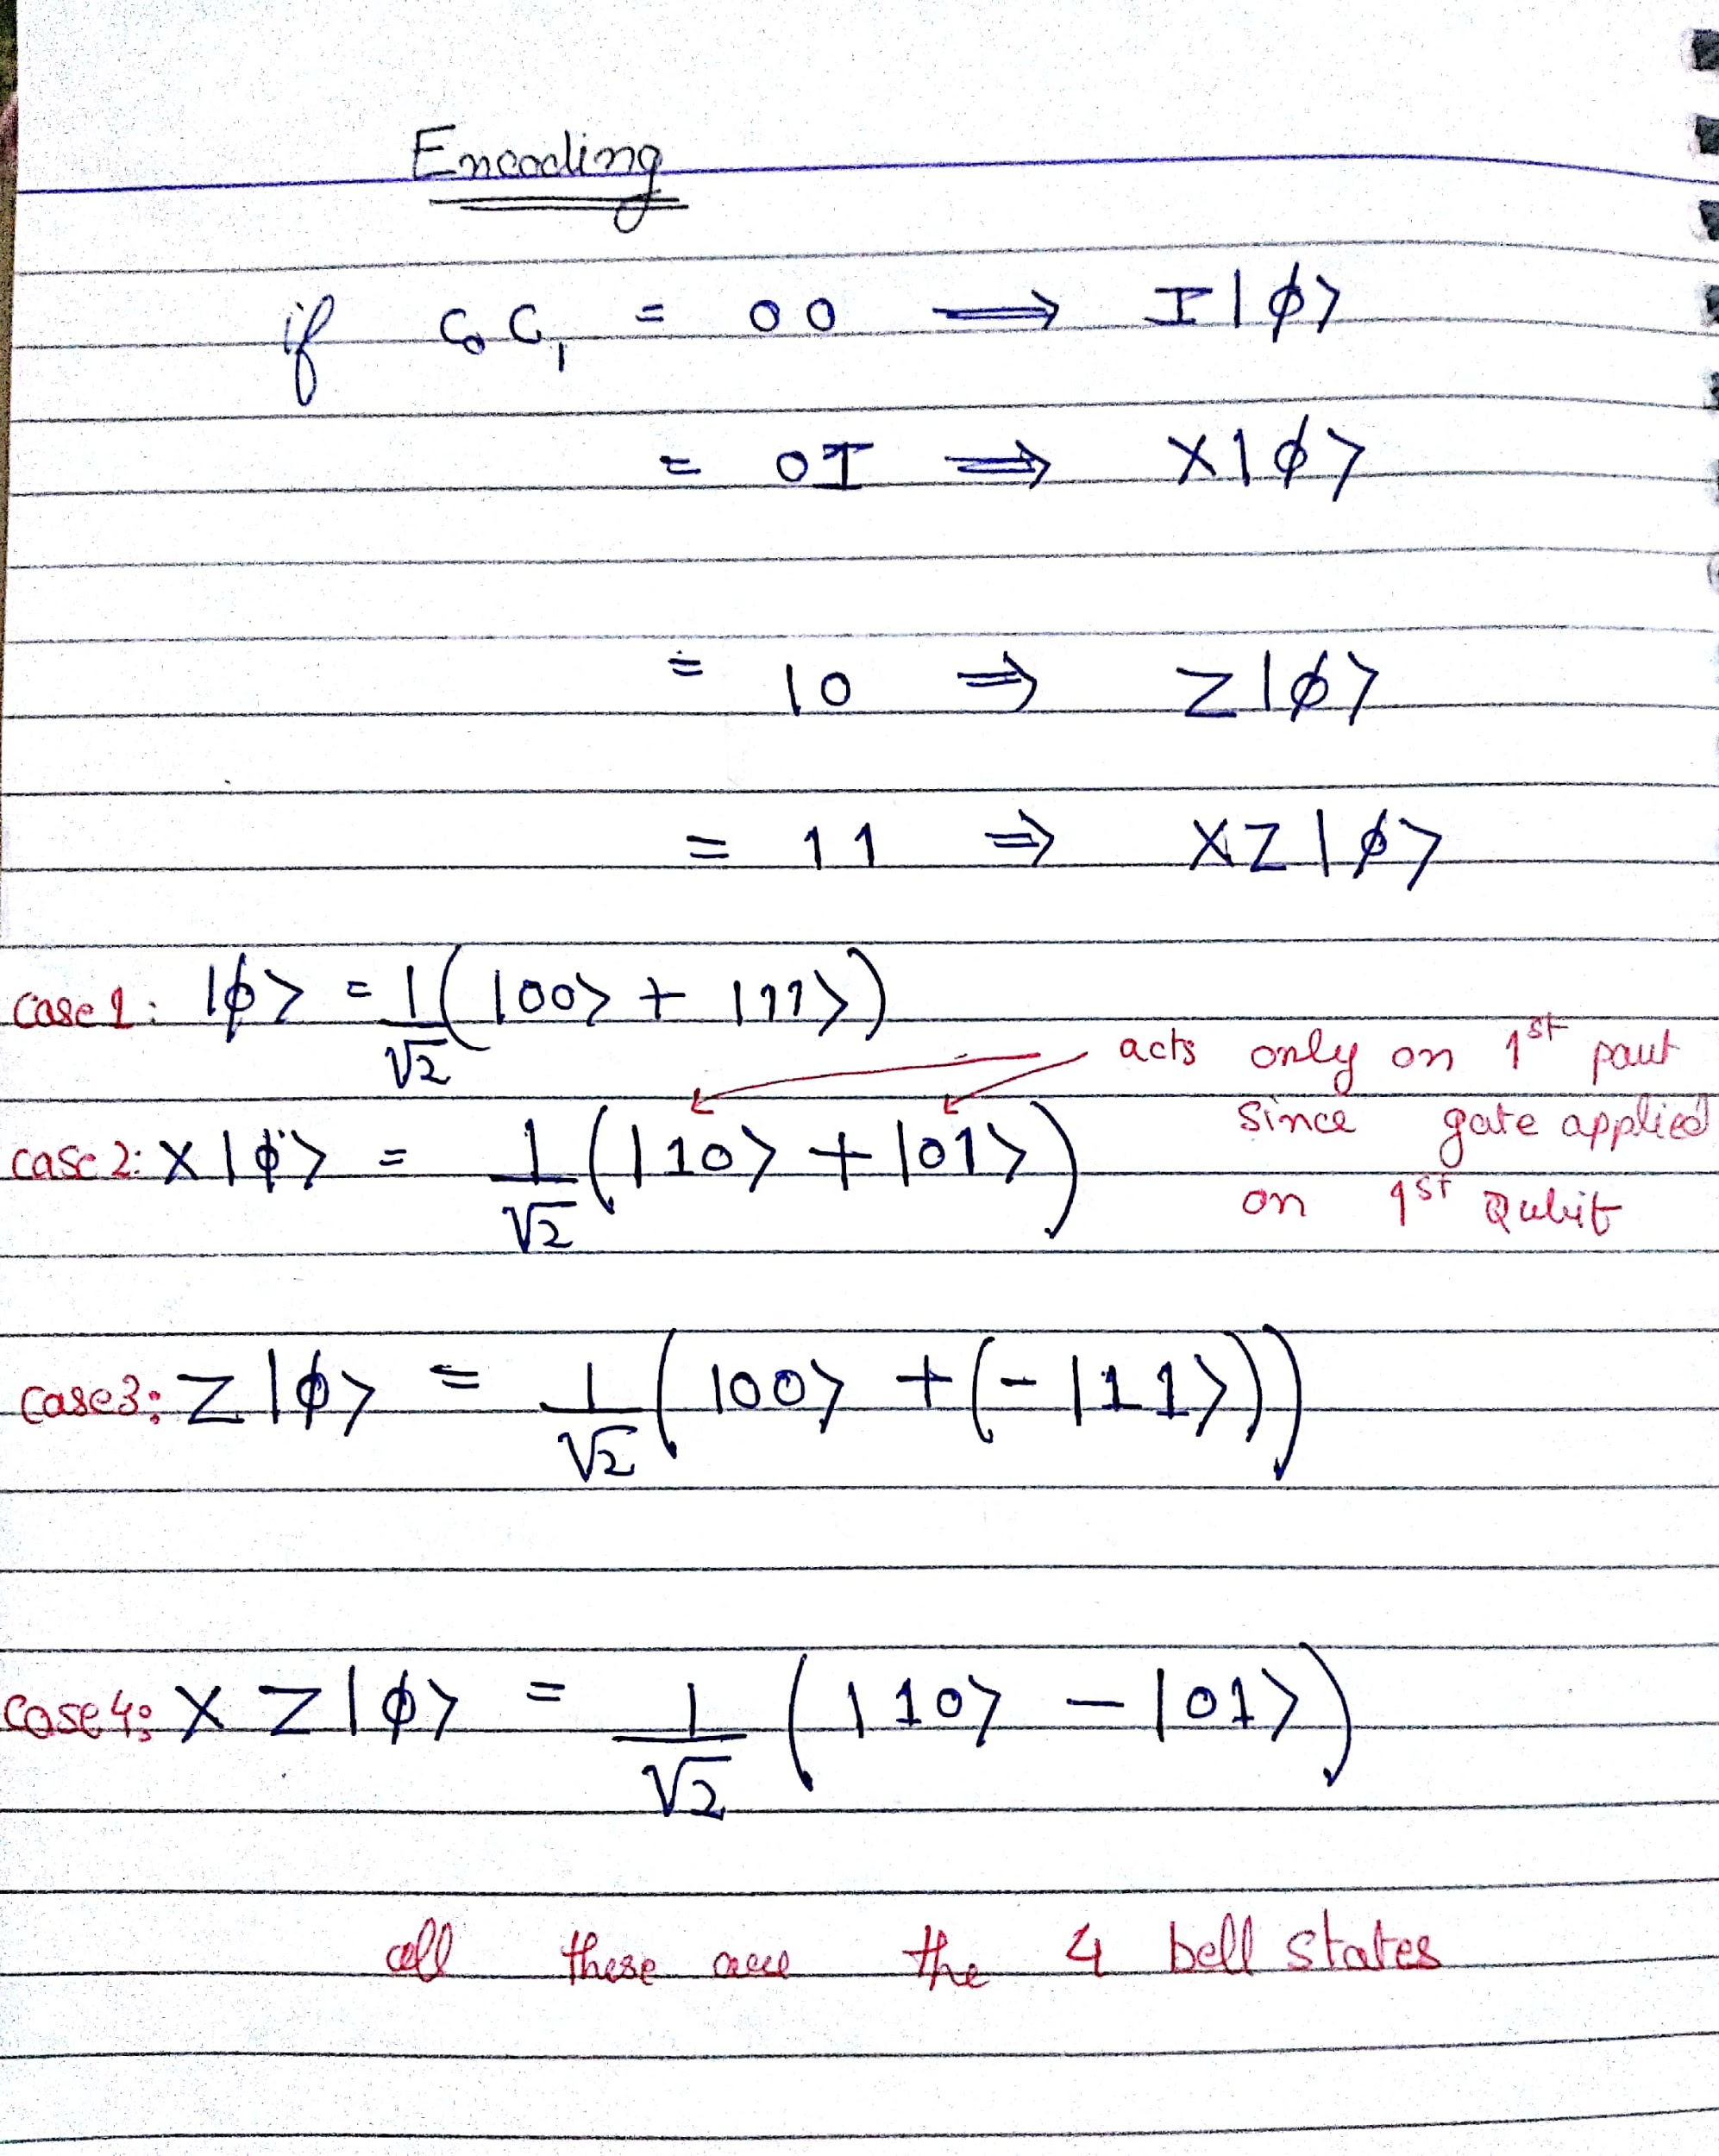 Encoding
if C₀C₁ = 00 ⟹ I|ϕ⟩
= 01 ⟹ X|ϕ⟩
= 10 ⟹ Z|ϕ⟩
= 11 ⟹ XZ|ϕ⟩
case1: |ϕ⟩ = 1/√2 (|00⟩ + |11⟩)
acts only on 1st part
since gate applied
on 1st Qubit
case2: X|ϕ⟩ = 1/√2 (|10⟩ + |01⟩)
case3: Z|ϕ⟩ = 1/√2 (|00⟩ + (-|11⟩))
case4: XZ|ϕ⟩ = 1/√2 (|10⟩ - |01⟩)
all these are the 4 bell states